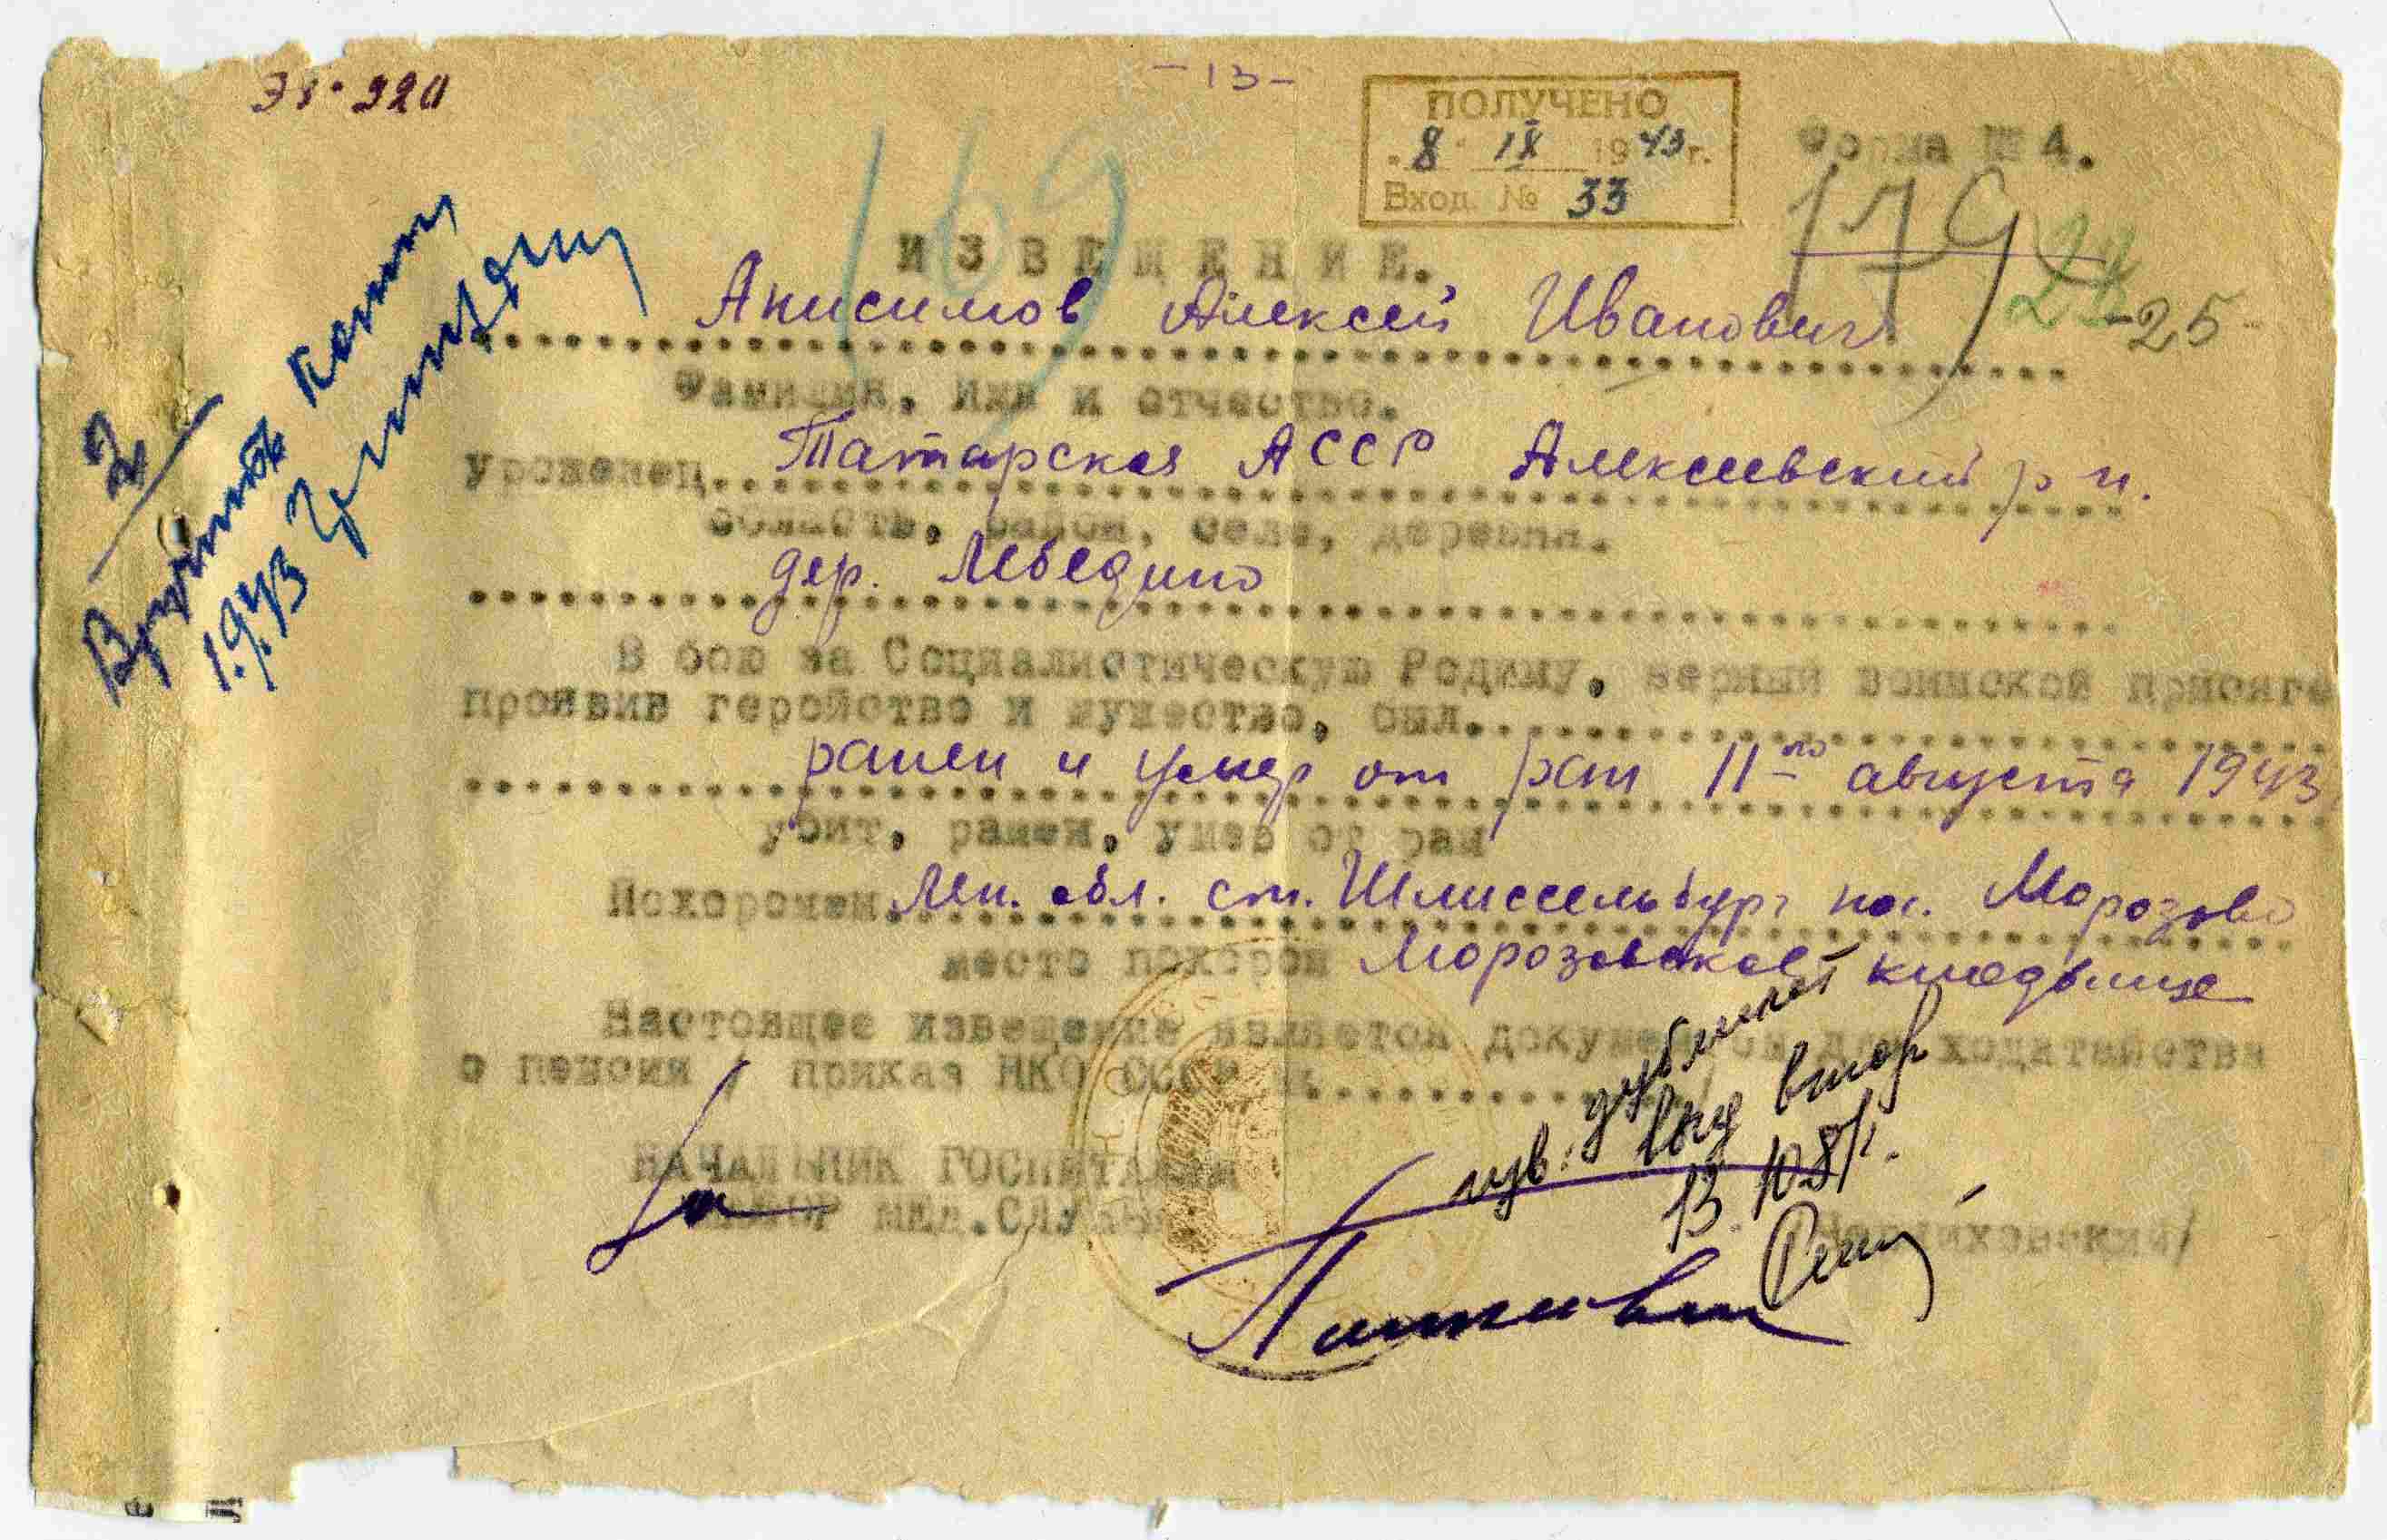 - 13 -
ПОЛУЧЕНО
8 IX 1943 г.
Вход. № 33
Форма № 4.
169
179
-25-
ИЗВЕЩЕНИЕ.
Анисимов Алексей Иванович
Фамилия, имя и отчество.
уроженец Татарская АССР Алексеевский р-н.
область, район, село, деревня.
дер. Лебедино
В бою за Социалистическую Родину, верный воинской присяге
проявив геройство и мужество, был
ранен и умер от ран 11го августа 1943
убит, ранен, умер от ран
Похоронен Лен. обл. ст. Шлиссельбург пос. Морозово
место похорон Морозовское кладбище
Настоящее извещение является документом для ходатайства
о пенсии / приказ НКО СССР №
НАЧАЛЬНИК ГОСПИТАЛЯ
МАЙОР МЕД.СЛУЖБЫ
изв. дубликат
выд втор
13 10 81г.
2
Вручить
1943